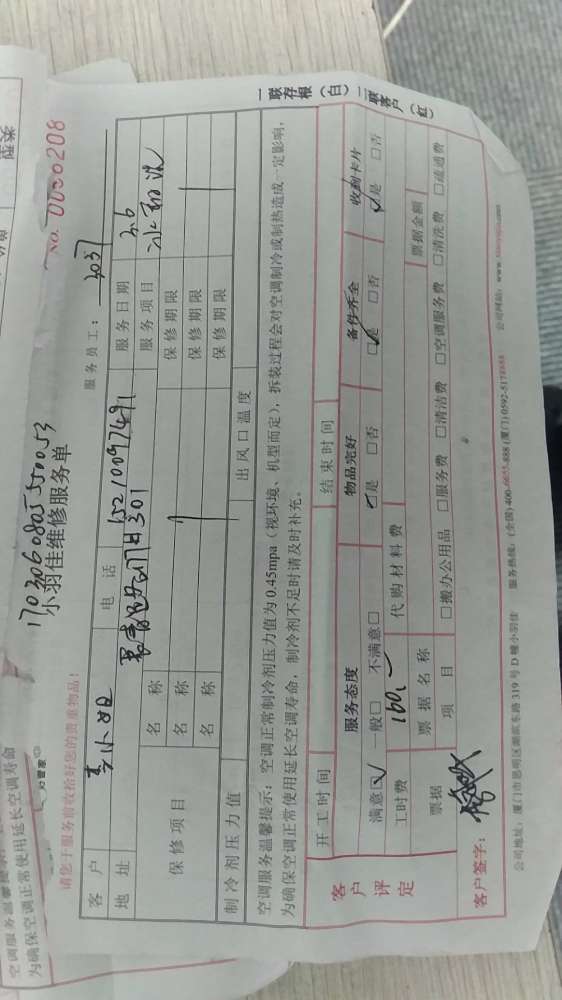 空调服务温馨提
为确保空调正常使用延长空调寿命
170306080555 0053
小羽佳维修服务单
No. 0020208
请您于服务前收拾好您的贵重物品!
服务员工: 3037
客户 李小姐 电话 15210097491 服务日期 3.6
地址 301 服务项目
保修项目 名称 保修期限
名称 保修期限
名称 保修期限
制冷剂压力值 出风口温度
空调服务温馨提示:空调正常制冷剂压力值为0.45mpa(视环境、机型而定),拆装过程会对空调制冷或制热造成一定影响,
为确保空调正常使用延长空调寿命,制冷剂不足时请及时补充。
一联存根(白) 二联客户(红)
开工时间 结束时间
客户评定 服务态度 物品完好 备件齐全 收到卡片
满意☑ 一般□ 不满意□ ☑是 □否 ☑是 □否 ☑是 □否
工时费 160.- 代购材料费
票据 票据名称 票据金额
项目 □搬办公用品 □服务费 □清洁费 □空调服务费 □清洗费 □疏通费
客户签字:
公司地址:厦门市思明区湖滨东路319号D幢小羽佳 服务热线:(全国)400-6655-888 (厦门)0592-5171555 公司网站:www.xiaoyujia.com